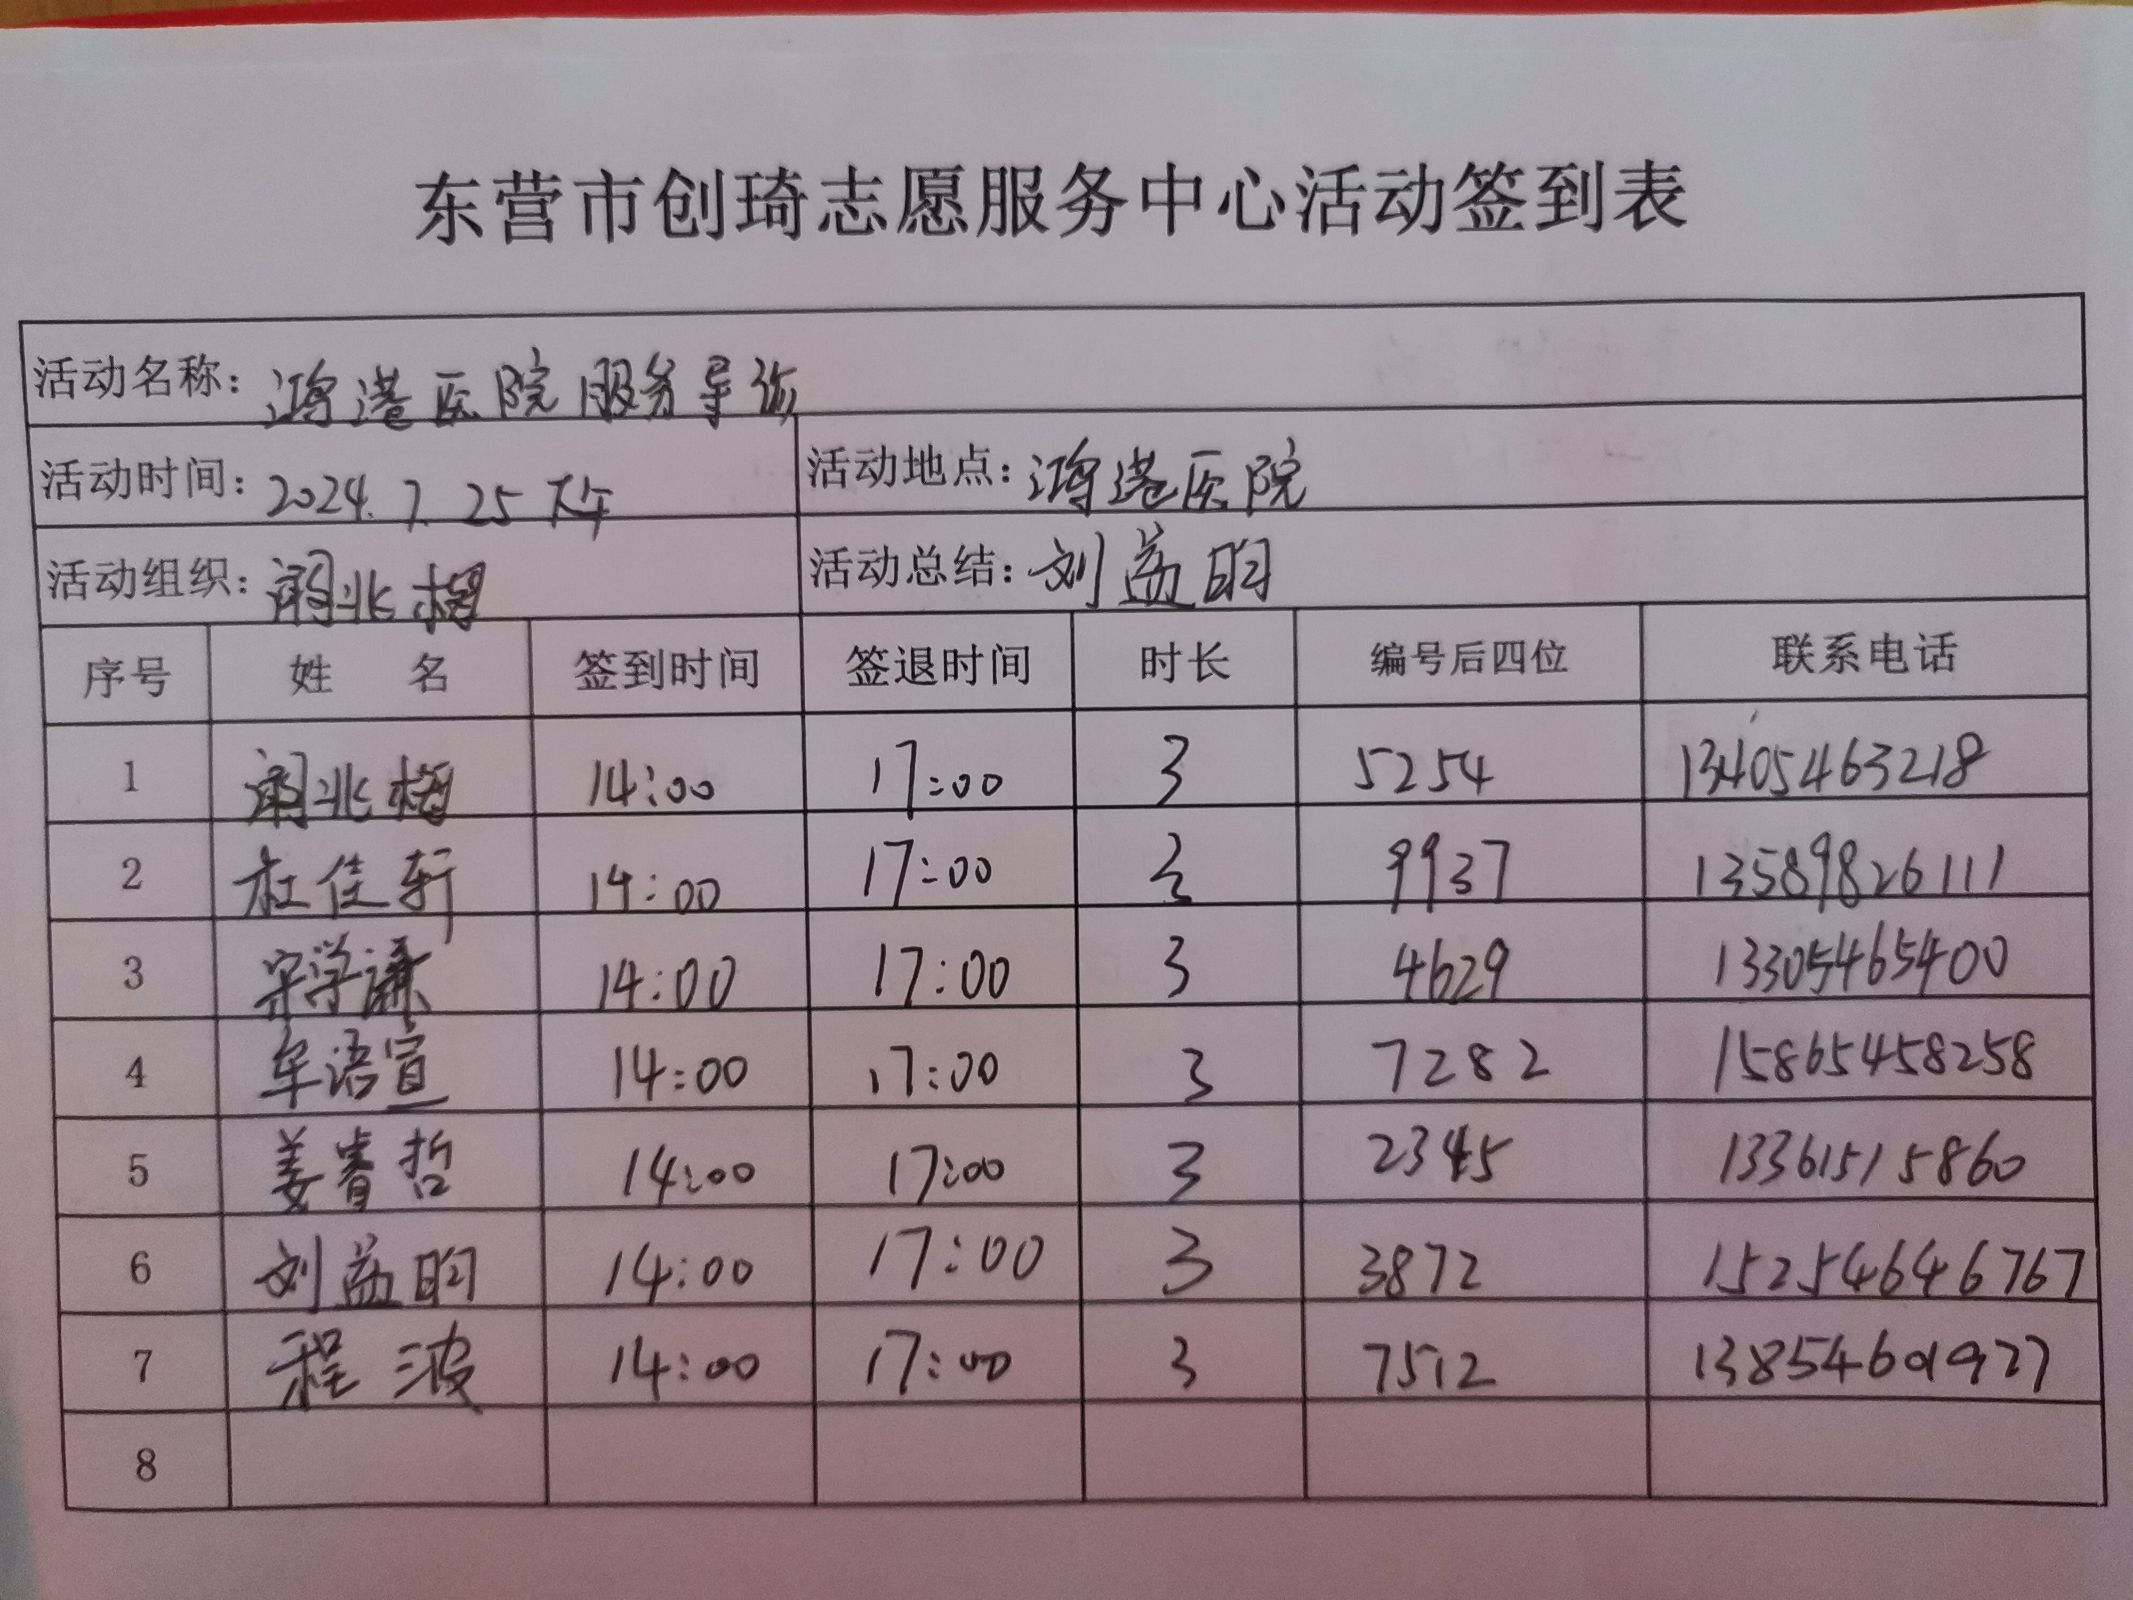 东营市创琦志愿服务中心活动签到表
活动名称：鸿港医院服务导诊
活动时间：2024.7.25下午 活动地点：鸿港医院
活动组织： 活动总结：刘益昀
序号 姓 名 签到时间 签退时间 时长 编号后四位 联系电话
1 14:00 17:00 3 5254 13405463218
2 杜佳轩 14:00 17:00 3 9937 13589826111
3 宋学谦 14:00 17:00 3 4629 13305465400
4 牟语宣 14:00 17:00 3 7282 15865458258
5 姜睿哲 14:00 17:00 3 2345 13361515860
6 刘益昀 14:00 17:00 3 3872 15254646767
7 程波 14:00 17:00 3 7512
8